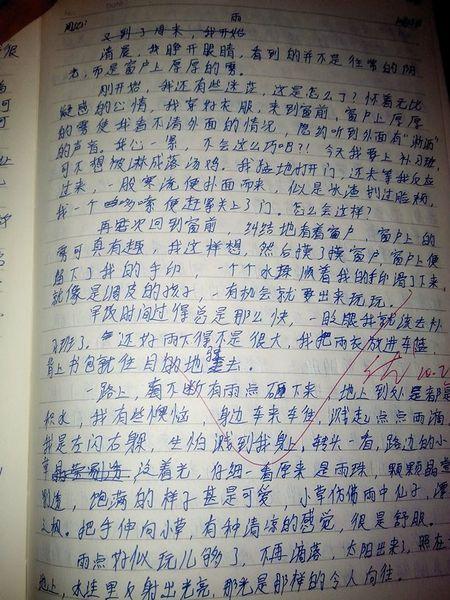 雨
周四:
又到了周末，我开始
清晨，我睁开眼睛，看到的并不是往常的阳
光，而是窗户上厚厚的雾。
刚开始，我还有些迷茫，这是怎么了？怀着无比
疑惑的心情，我穿好衣服，来到窗前，窗户上厚厚
的雾使我看不清外面的情况，隐约听到外面有"淅沥"
的声音。我心一紧，不会这么巧吧?! 今天我要上补习班，
可不想被淋成落汤鸡。我猛地打开门，还未等我反应
过来，一股寒流便扑面而来，似是冰渣划过脸颊，
我一个哆嗦便赶紧关上了门。怎么会这样？
再次回到窗前，纠结地看着窗户，窗户上的
雾可真有趣，我这样想，然后摸了摸窗户，窗户上便
留下了我的手印，一个个水珠顺着我的手印滑了下来，
就像是调皮的孩子，一有机会就要出来玩玩。
早饭时间过得总是那么快，一眨眼我就该去补
习班了，还好雨下得不是很大，我把雨衣放进车筐，
背上书包就往目的地骑去。
一路上，不断有雨点砸下来，地上到处是都是
积水，我有些懊恼，身边车来车往，溅起点点雨滴，
我是左闪右躲，生怕溅到我身上，转头一看，路边的小
草沿着光，仔细一看原来是雨珠，颗颗晶莹
剔透，饱满的样子甚是可爱，小草仿佛雨中仙子，漂
把手伸向小草，有种清凉的感觉，很是舒服。
雨点好似玩儿够了，不再滴落，太阳出来了，照在
地上，水洼里反射出光亮，那光是那样的令人向往。
优
10.2